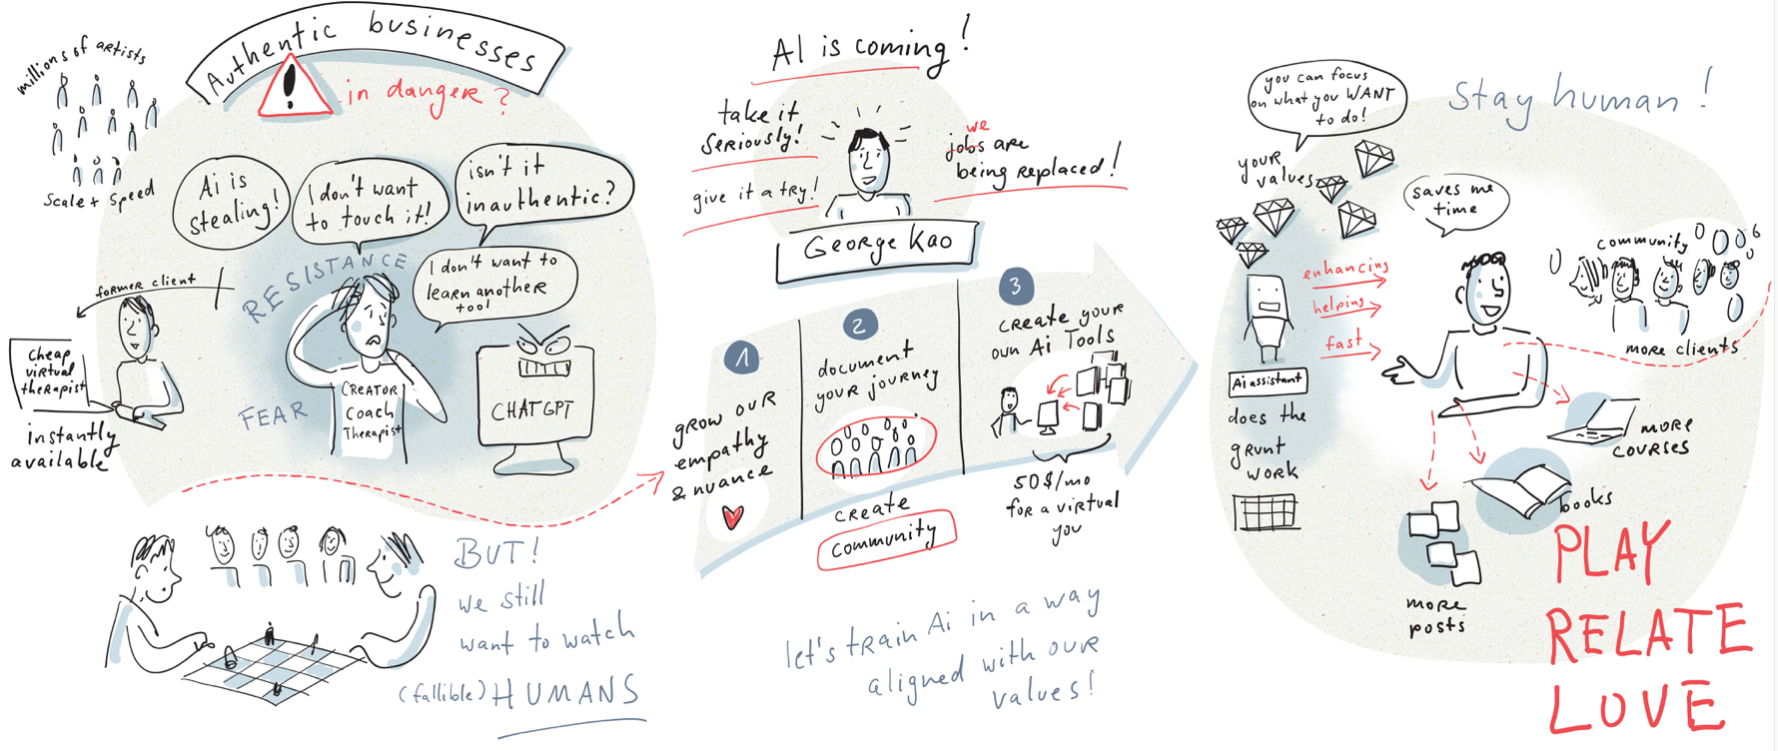 millions of artists
Scale + Speed
Authentic businesses
!
in danger?
Ai is
stealing!
I don't want
to touch it!
isn't it
inauthentic?
I don't want to
learn another
tool
RESISTANCE
FEAR
former client
cheap
virtual
therapist
instantly
available
CREATOR
COACH
Therapist
CHATGPT
BUT!
we still
want to watch
(fallible) HUMANS
AI is coming!
take it
seriously!
give it a try!
we
jobs are
being replaced!
George Kao
1
grow our
empathy
& nuance
2
document
your journey
create
community
3
create your
own Ai Tools
50$/mo
for a virtual
you
let's train Ai in a way
aligned with our
values!
you can focus
on what you WANT
to do!
Stay human!
your
values
saves me
time
enhancing
helping
fast
Ai assistant
does the
grunt
work
community
more clients
more
courses
books
more
posts
PLAY
RELATE
LOVE